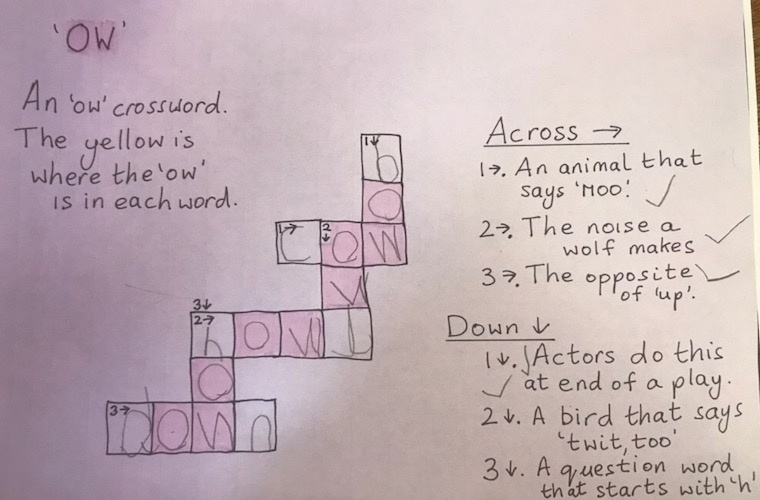 'OW'
An 'ow' crossword.
The yellow is
where the 'ow'
is in each word.
1↓
b
o
1→ C 2↓ o w
w
3↓
2→ h o w l
o
3→ d o w n
Across →
1→. An animal that
says 'MOO'.
2→. The noise a
wolf makes
3→. The opposite
of 'up'.
Down ↓
1↓. Actors do this
at end of a play.
2↓. A bird that says
'twit, too'
3↓. A question word
that starts with 'h'